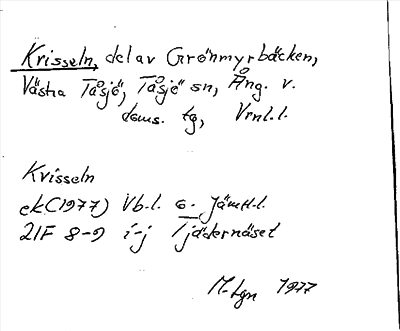 Krisseln, del av Grönmyrbäcken,
Västra Tåsjö, Tåsjö sn, Ång. v.
doms. tg, Vrnl.l.
Krisseln
ek(1977) Vb.l. o. Jämtl.l.
21F 8-9 i-j Tjädernäset
M-lgn 1977